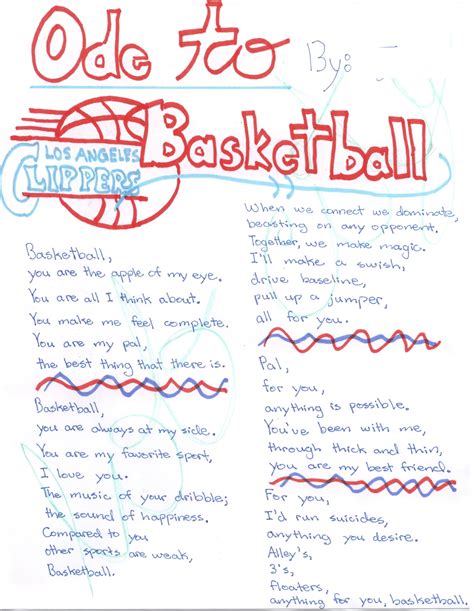 Ode to
By:
Basketball
LOS ANGELES
CLIPPERS
Basketball,
you are the apple of my eye.
You are all I think about.
You make me feel complete.
You are my pal,
the best thing that there is.
Basketball,
you are always at my side.
You are my favorite sport,
I love you.
The music of your dribble;
the sound of happiness.
Compared to you
other sports are weak,
Basketball.
When we connect we dominate,
beasting on any opponent.
Together, we make magic.
I'll make a swish,
drive baseline,
pull up a jumper,
all for you.
Pal,
for you,
anything is possible.
You've been with me,
through thick and thin,
you are my best friend.
For you,
I'd run suicides,
anything you desire.
Alley's,
3's,
floaters,
anything for you, basketball